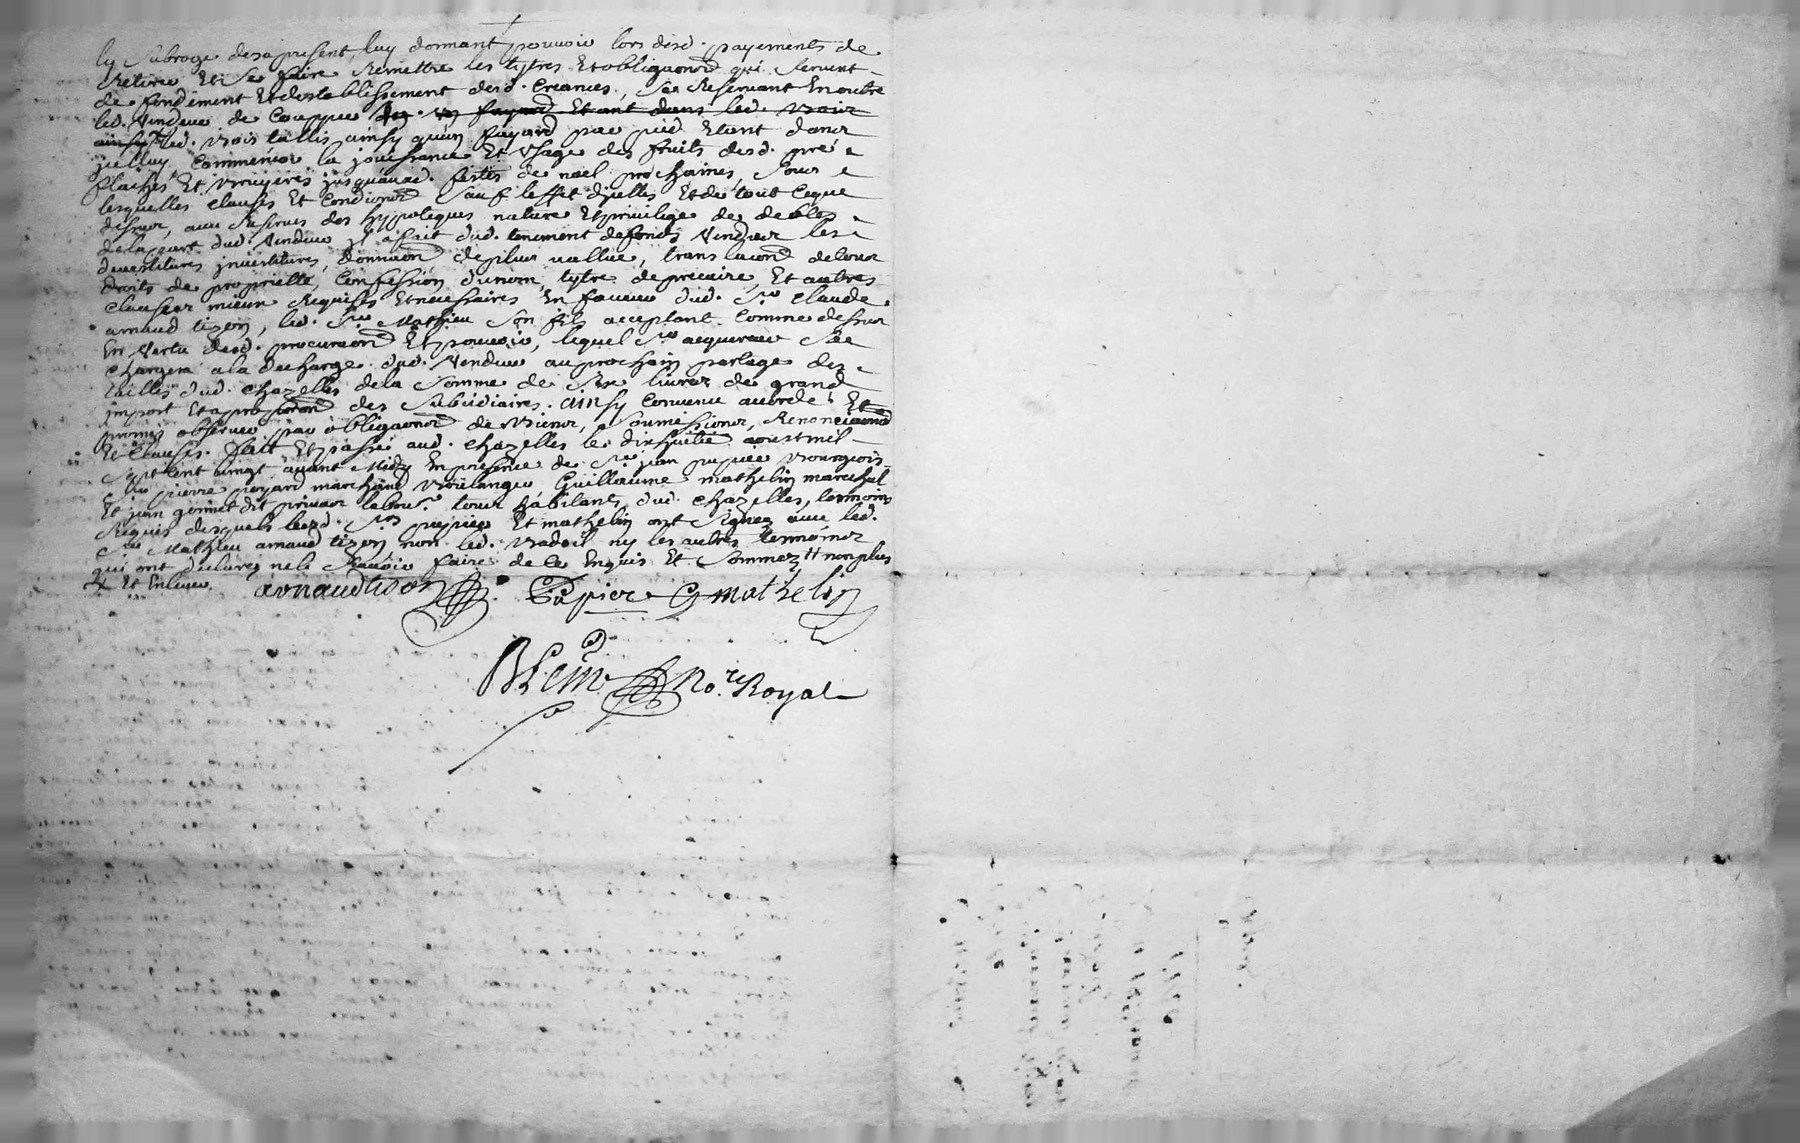 ly subroge desapresent, luy donnant pouvoir lors desd. payements de
Retirer Et Se faire Remettre les tytres Et obliguaons qui Servent
de fondement Et detablissement desd. Creances, Se Reservant En outre
led. Vendeur de Coupper un fayard Etant dans led. Bois
led. bois tallis ainsy qu'un fayard par pied Etant dans
jcelluy Commencer la jouissance Et Usage des fruits desd. pré
flaches Et bruyeres jusquauxd. festes de noel prochaines, Sous
lesquelles clauses Et Condions Sauf leffet dycelles Et de tout Ceque
dessus, avec Reserves des hypoteques nature Et privilege de debtes
de la part dud. Vendeur jl a fait dud. tenement de fonds Vendeur les
devestitures jnvestitures, donnaon de plus vallue, translaon de tous
droits de proprietté, Confession dunom, tytre de precaire, Et autres
clauses mieux Requises Et necessaires En faveur dud. Sr. Claude
arnaud tizon, led. Sr. Mathieu Son fils acceptant Comme dessus
En Vertu desd. procuraon Et pouvoir, lequel Sr. acquereur Se
Chargera ala decharge dud. Vendeur au prochain partage des
tailles dud. Chazelles de la Somme de Six livres de grand
jmpost Et a proportion des Subsidiaires. ainsy Convenu accordé Et
promis observer par obliguaon de biens, Soumissions, Renonciaons
Et clauses. fait Et passé aud. Chazelles le dixhuitie aoust mil
Sept Cent vingt avant Midy En presence de Sr. jean pupier bourgeois
Sr. pierre poyard marchand boulanger Guillaume mathelin marechal
Et jean gonnet dit privas labour. tous habitants dud. Chazelles, temoins
Requis desquels lesd. Srs. pupier Et mathelin ont Signez avec led.
Sr. Mathieu arnaud tizon non led. Vadoil ny les autres temoins
qui ont declarez ne le Scavoir faire de Ce Enquis Et Sommez # non plus
# Et Enlever
arnaudtison Pupier G mathelin
No.re Royal